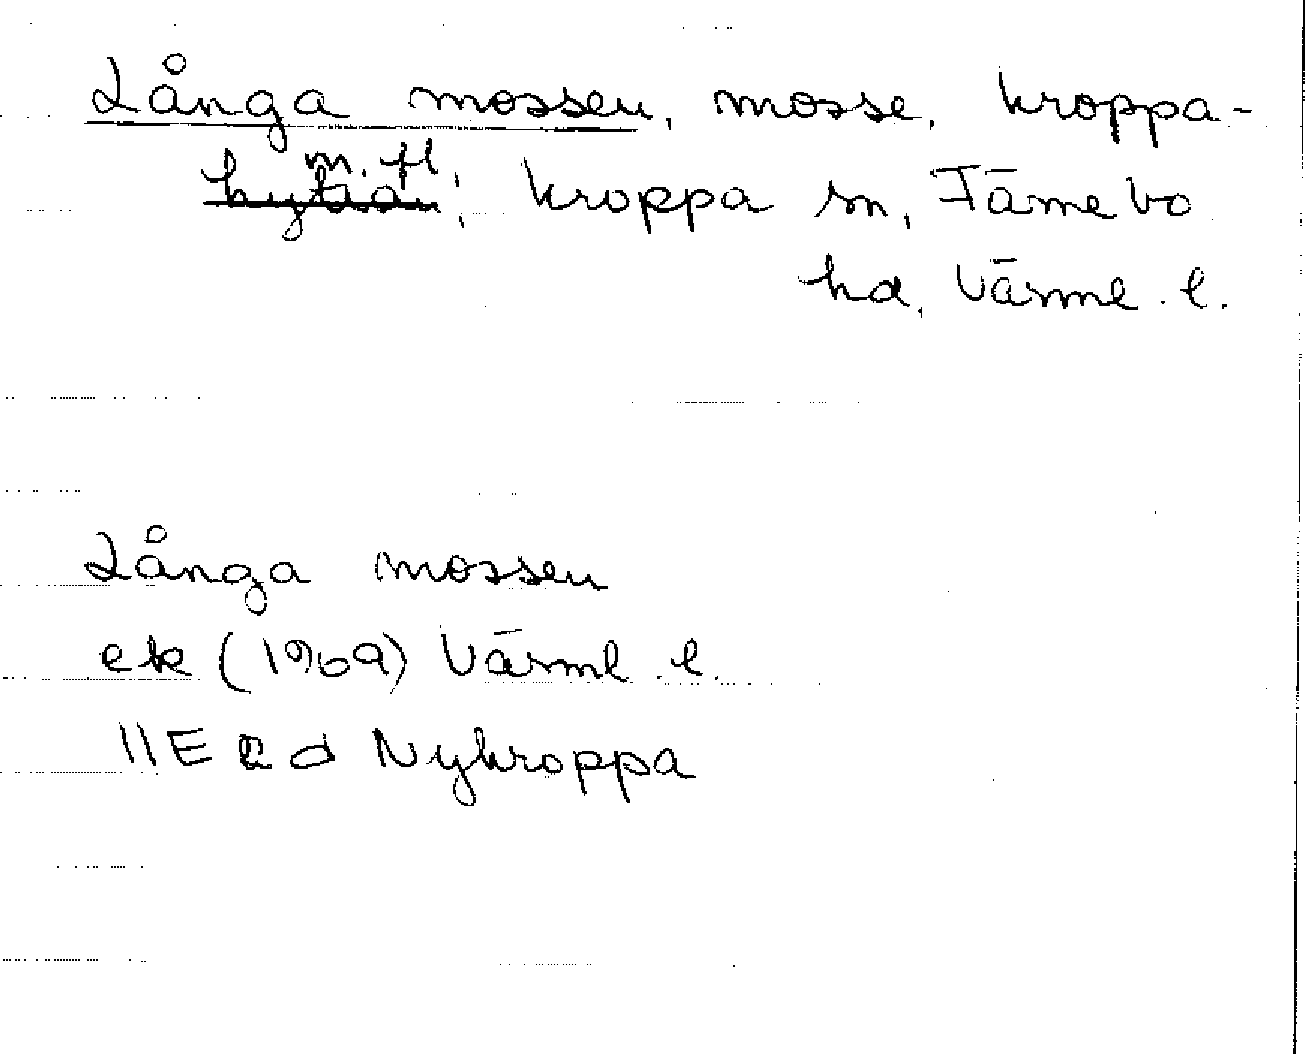 Långa mossen, mosse, Kroppa-
hyttan, m. fl., Kroppa sn, Färnebo
hd, Värml. l.
Långa mossen
ek (1969) Värml. l.
11E 2d Nykroppa